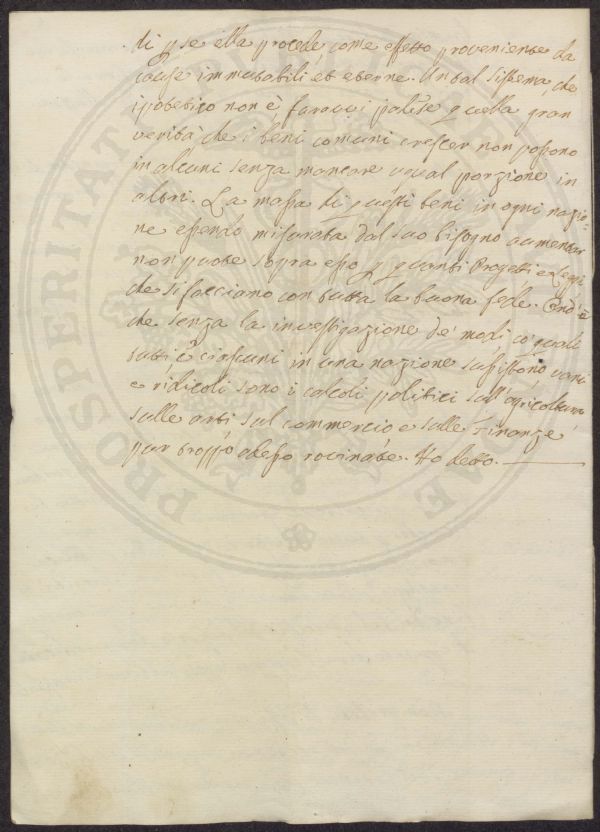 di p se ella procede, come effetto proveniente da
cause immutabili et eterne. Un tal sistema, che
ipotetico non è faravvi palese quella gran
verità che i beni comuni crescer non possono
in alcuni senza mancare ugual porzione in
altri. La massa di questi beni in ogni nazio=
ne essendo misurata dal suo bisogno aumentar
non puote sopra esso p quanti Progetti e Leggi
che si facciano con tutta la buona fede. Ond'è
che senza la investigazione de' modi co' quali
tutti e ciascuni in una nazione sussistono, vani
e ridicoli sono i calcoli politici sull'agricoltura
sulle arti sul commercio e sulle Finanze
pur troppo adesso rovinate. Ho detto.
PROSPERITATI PUBLICAE